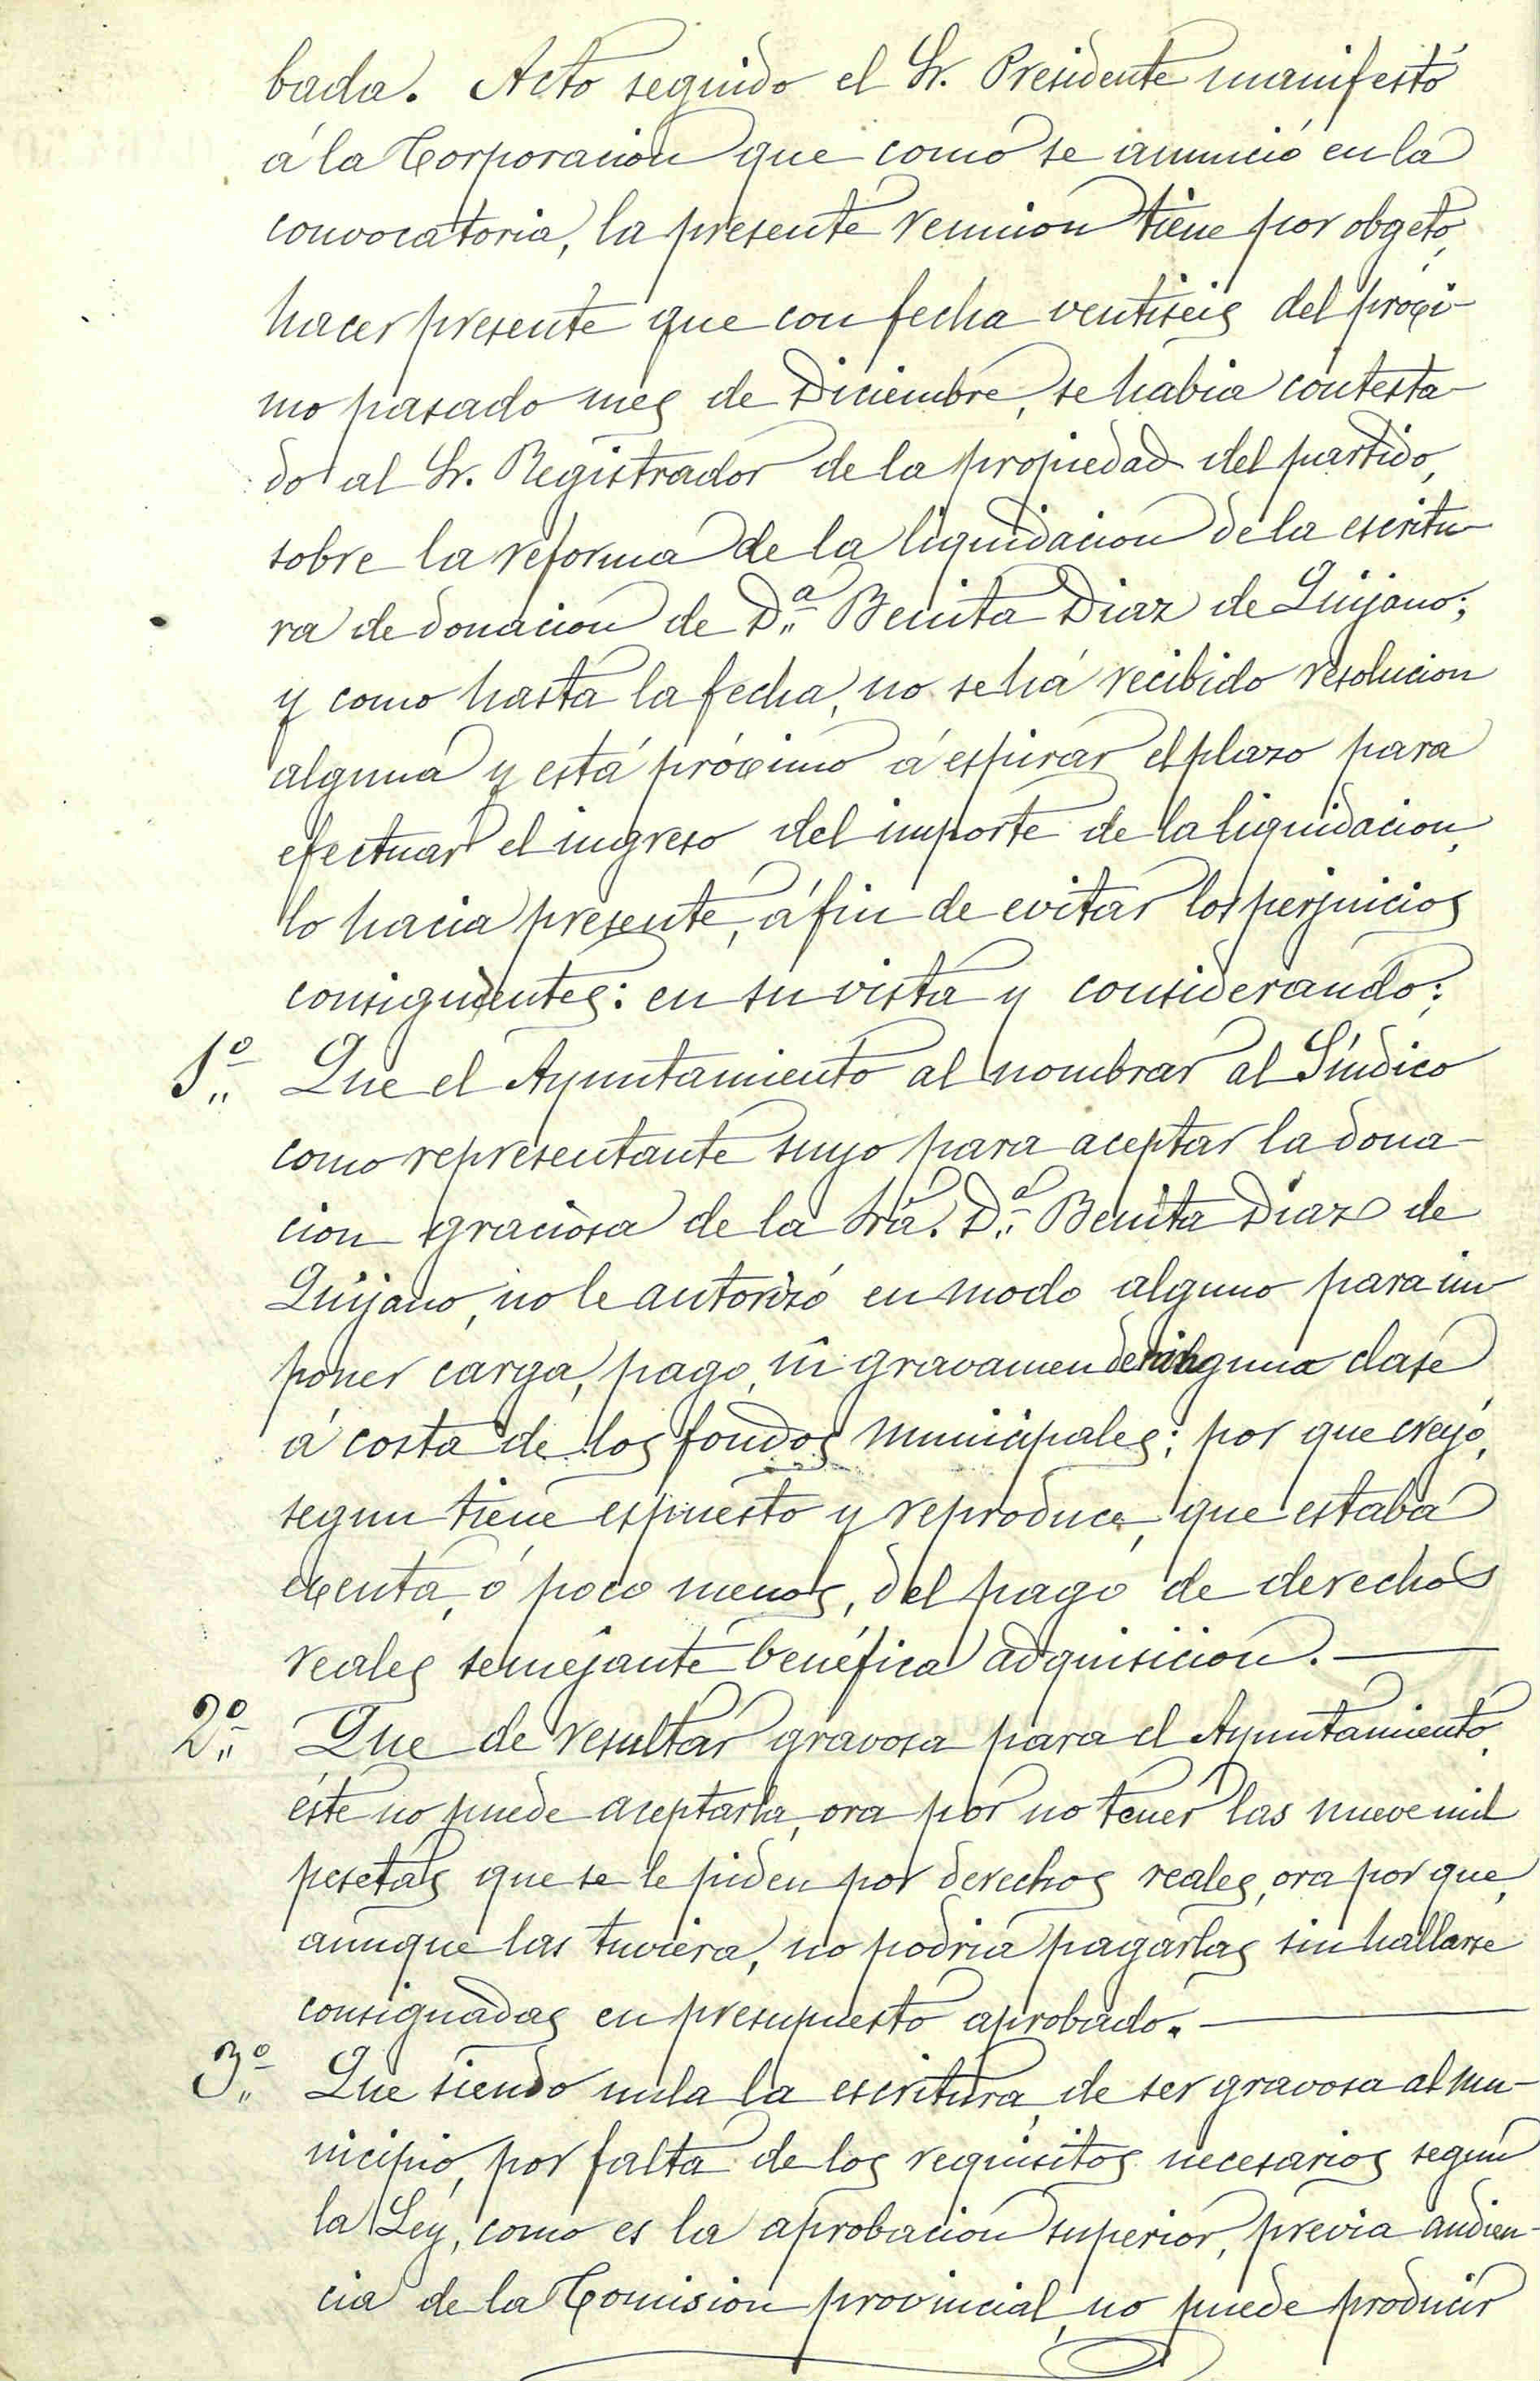 bada. Acto seguido el Sr. Presidente manifestó
á la Corporacion que como se anunció en la
convocatoria, la presente reunion tiene por obgeto,
hacer presente que con fecha ventiseis del proxi-
mo pasado mes de Diciembre, se habia contesta-
do al Sr. Registrador de la propiedad del partido,
sobre la reforma de la liquidacion de la escritu-
ra de donacion de D.ª Benita Diaz de Quijano;
y como hasta la fecha, no se há recibido resolucion
alguna y está próximo á espirar el plazo para
efectuar el ingreso del importe de la liquidacion,
lo hacia presente, á fin de evitar los perjuicios
consiguientes: en su vista y considerando:
1.º Que el Ayuntamiento al nombrar al Síndico
como representante suyo para aceptar la dona-
cion graciosa de la Sra. D.ª Benita Diaz de
Quijano, no le autorizó en modo alguno para im-
poner carga, pago, ni gravamen de ninguna clase
á costa de los fondos municipales; por que creyó,
segun tiene espuesto y reproduce, que estaba
exenta, ó poco menos, del pago de derechos
reales semejante benéfica adquisicion.
2.º Que de resultar gravosa para el Ayuntamiento,
éste no puede aceptarla, ora por no tener las nueve mil
pesetas que se le piden por derechos reales, ora por que,
aunque las tuviera, no podria pagarlas sin hallarse
consignadas en presupuesto aprobado.
3.º Que siendo nula la escritura, de ser gravosa al mu-
nicipio, por falta de los requisitos necesarios segun
la Ley, como es la aprobacion superior, previa audien-
cia de la Comision provincial, no puede producir